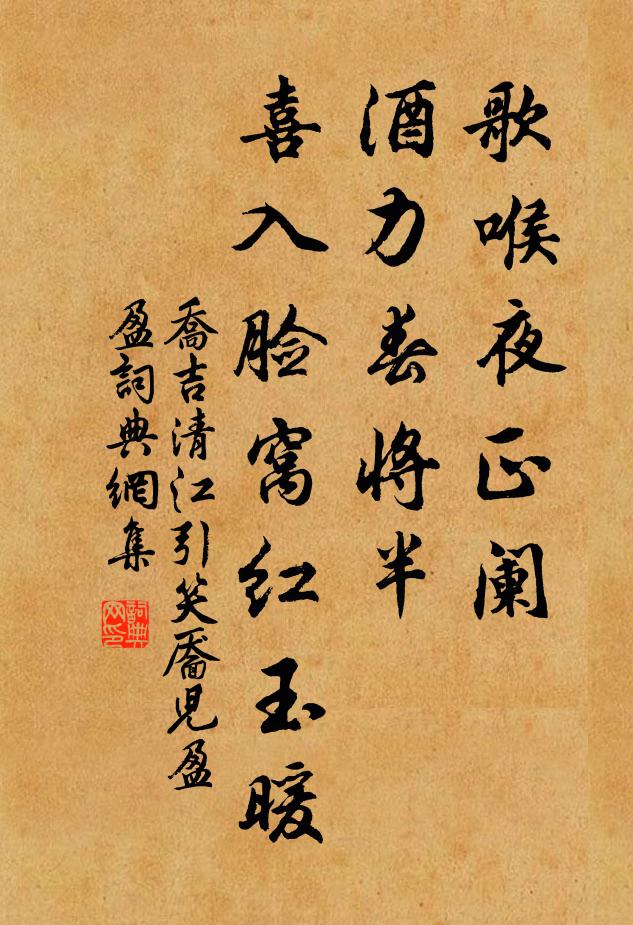 歌喉夜正阑
酒力春将半
喜入脸窝红玉暖
喬吉清江引笑靨兒盈
盈詞典網集
詞典
网印